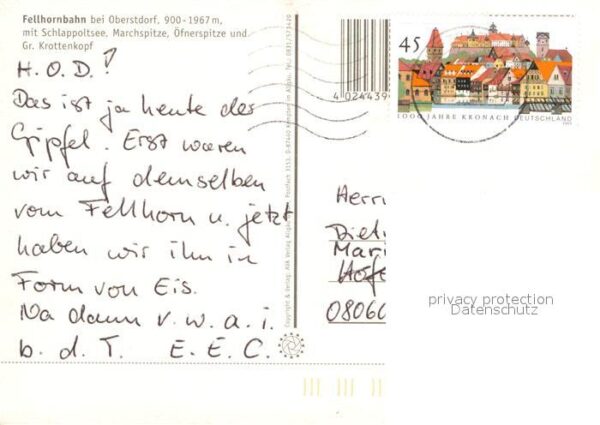 Fellhornbahn bei Oberstdorf, 900-1967 m,
mit Schlappoltsee, Marchspitze, Öfnerspitze und
Gr. Krottenkopf
H. O. D. !
Das ist ja heute der
Gipfel. Erst waren
wir auf demselben
vom Fellhorn u. jetzt
haben wir ihn in
Form von Eis.
Na dann v. w. a. i.
b. d. T. E. E. C.
Copyright & Verlag: AVA Verlag Allgäu
Postfach 3153, D-87440
4 024439
45
1000 JAHRE KRONACH DEUTSCHLAND
Herrn
Diet
Mari
Hofe
08060
privacy protection
Datenschutz